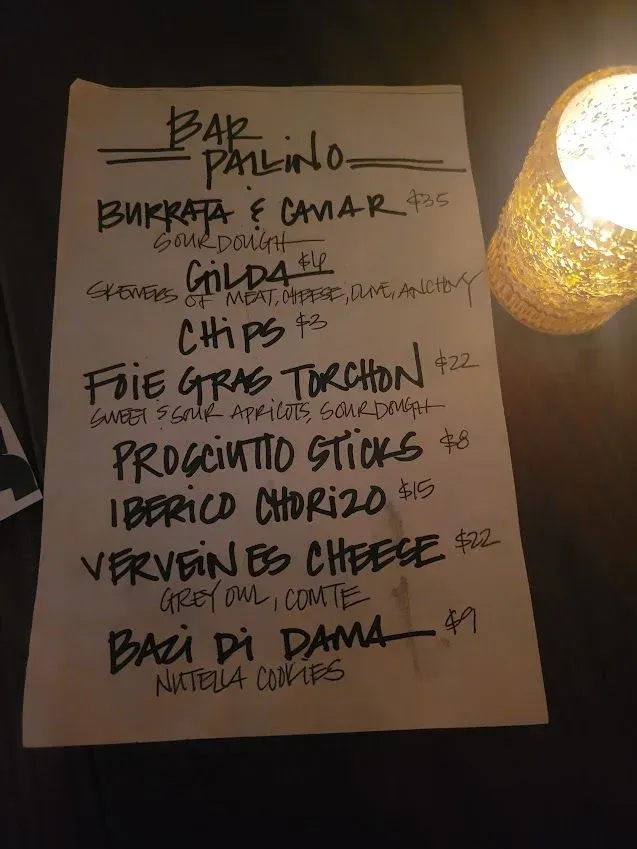 BAR
PALLINO
BURRATA & CAVIAR $35
SOURDOUGH
GILDA $6
SKEWERS OF MEAT, CHEESE, OLIVE, ANCHOVY
CHIPS $3
FOIE GRAS TORCHON $22
SWEET & SOUR APRICOTS, SOURDOUGH
PROSCIUTTO STICKS $8
IBERICO CHORIZO $15
VERVEINES CHEESE $22
GREY OWL, COMTE
BACI DI DAMA $9
NUTELLA COOKIES